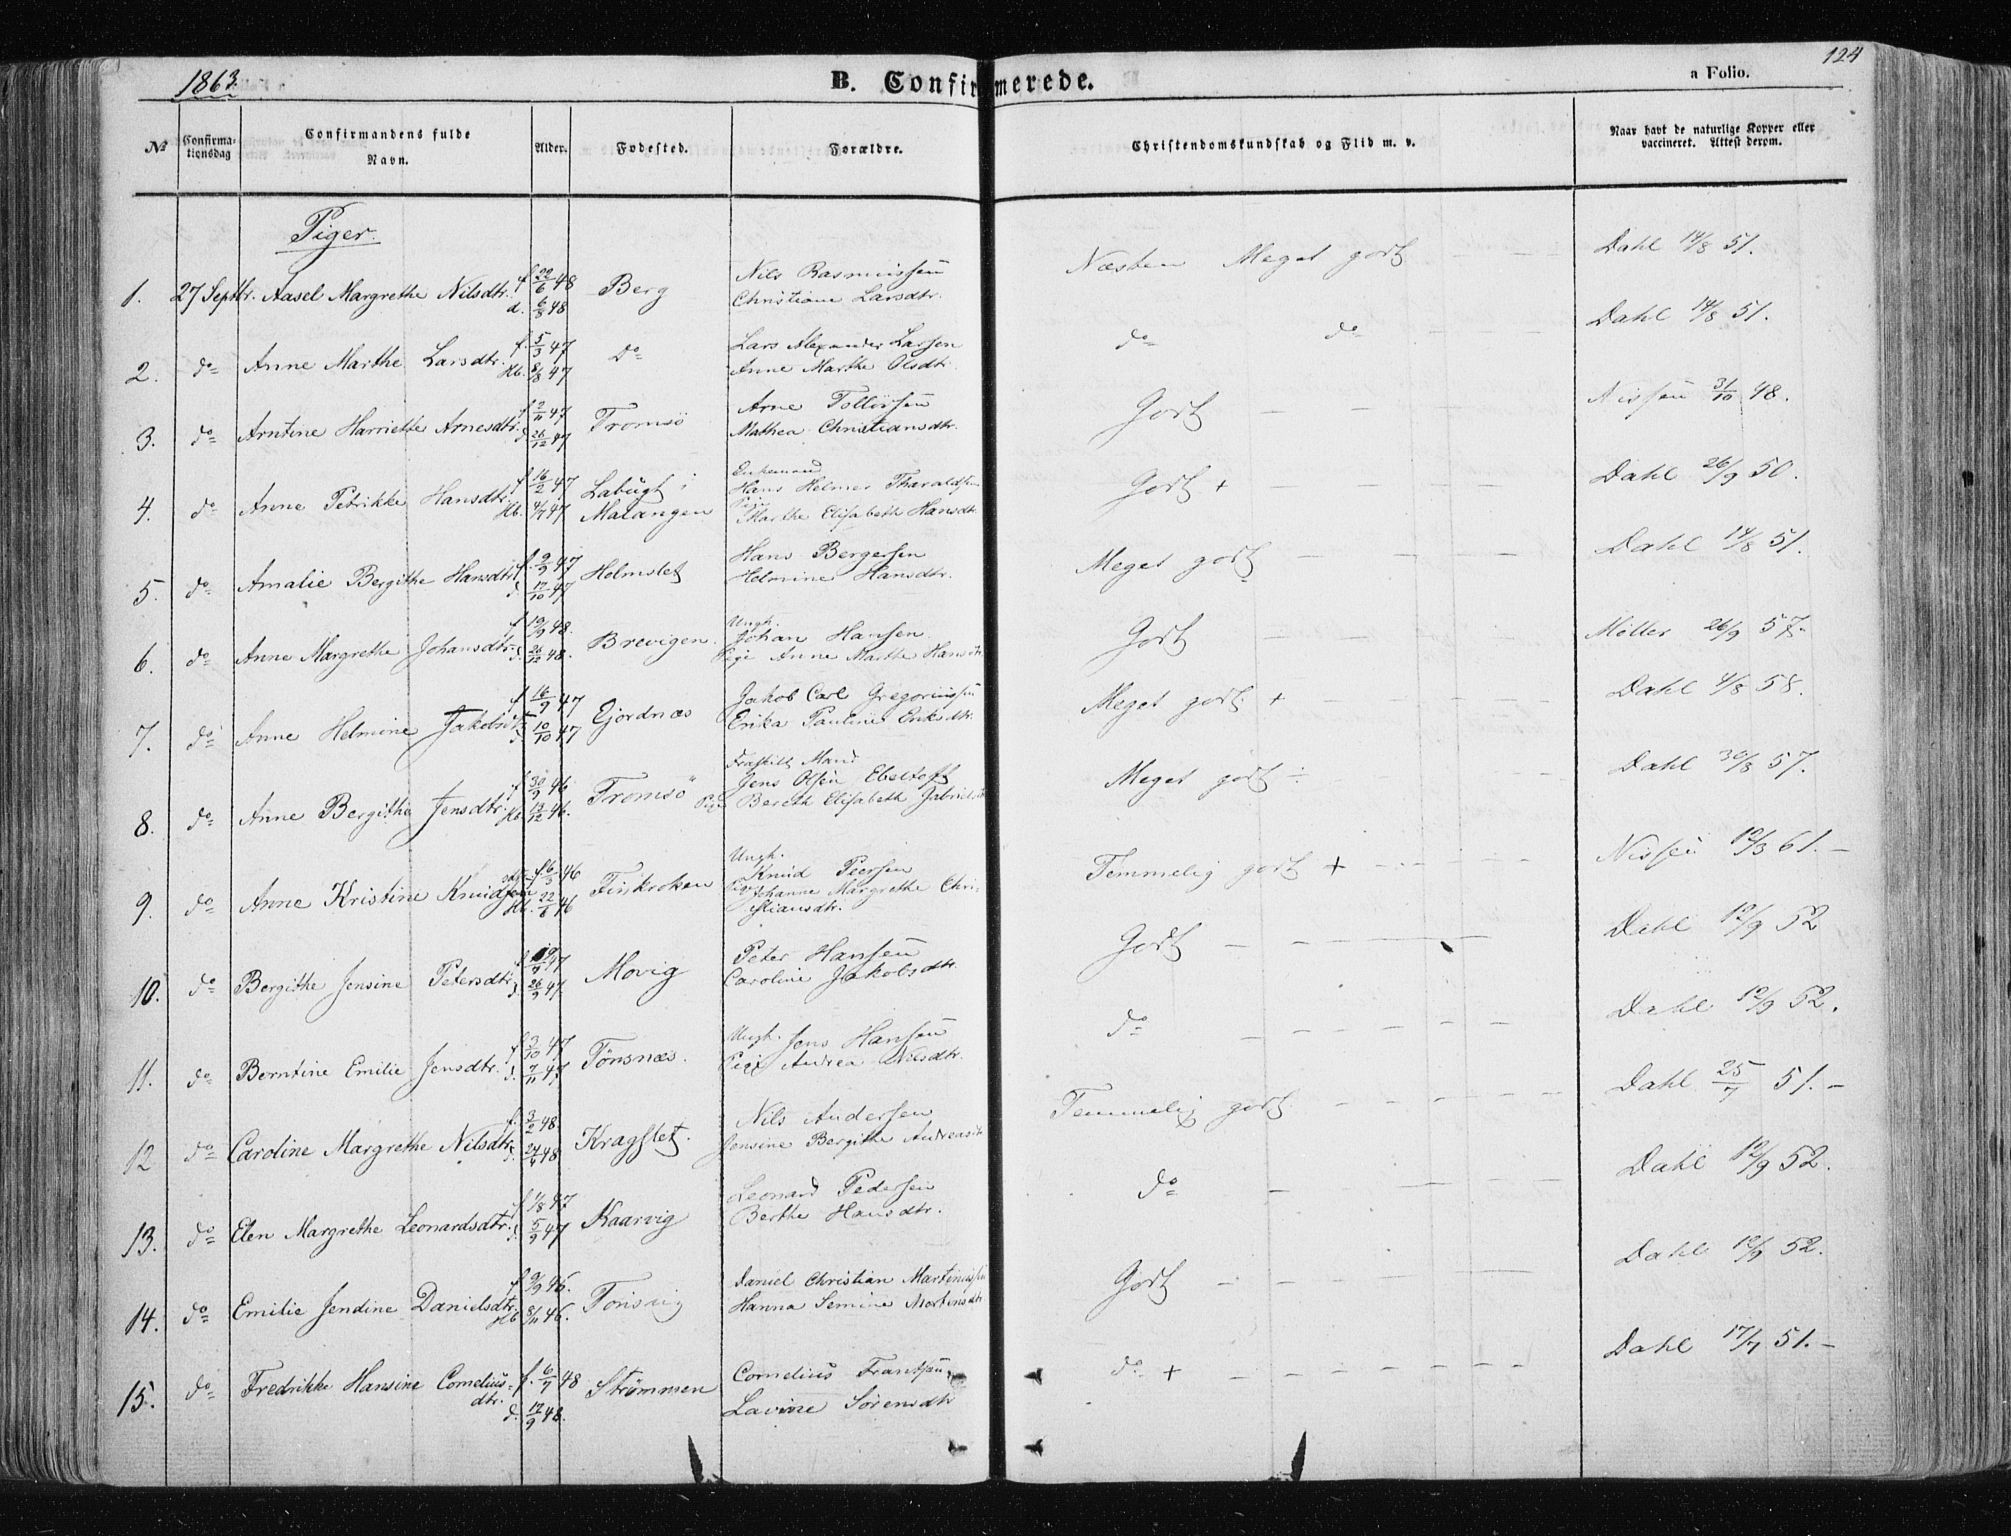 1863.
B. Confirmerede.
a Folio.
124
№
Confirma-
tionsdag
Confirmandens fulde
Navn.
Alder.
Fødested.
Forældre.
Christendomskundskab og Flid m. v.
Naar havt de naturlige Kopper eller
vaccineret. Attest derom.
Piger.
1. 27 Septbr. Aasel Margrethe Nilsdtr. f. 22/6 48 d. 6/8 48 Berg Nils Rasmussen Christiane Larsdtr. Næsten Meget godt Dahl 14/8 51.
2. do Anne Marthe Larsdtr. f. 5/3 47 Hb. 8/8 47 do Lars Alexander Larsen Anne Marthe Olsdtr. do do Dahl 14/8 51.
3. do Arntine Harriette Arnesdtr. f. 2/11 47 d. 26/12 47 Tromsö Arne Tollevsen Mathea Christiansdtr. Godt Nissen 31/10 48.
4. do Anne Petrikke Hansdtr. f. 16/2 47 Hb. 4/4 47 Labugt i Malangen Enkemand Hans Helmer Tharaldsen Pige Marthe Elisabeth Hansdtr. Godt + Dahl 26/9 50.
5. do Amalie Bergithe Hansdtr. f. 9/9 47 d. 17/10 47 Helmslet Hans Bergersen Helmine Hansdtr. Meget godt Dahl 14/8 51.
6. do Anne Margrethe Johansdtr. f. 19/9 48. d. 26/12 48. Brevigen. Ungk. Johan Hansen. Pige Anne Marthe Hansdtr. Godt Møller 26/9 57.
7. do Anne Helmine Jakobsdtr. f. 16/9 47 d. 10/10 47 Ejordnæs Jakob Carl Gregoriussen Erika Pauline Eriksdtr. Meget godt + Dahl 4/8 58.
8. do Anne Bergithe Jensdtr. f. 30/9 46 Hb. 13/12 46. Tromsö Fraskilt Mand Jens Olsen Ebeltoft Pige Bereth Elisabeth Gabrielsdtr. Meget godt ÷ Dahl 30/8 57.
9. do Anne Kristine Knudsen f. 6/3 46 Hb. 22/8 46 Finkroken Ungk. Knud Peersen Pige Johanne Margrethe Chri-
stiansdtr. Temmelig godt + Nissen 12/3 61.
10. do Bergithe Jensine Petersdtr. 47 d. 26/9 47. Movig Peter Hansen Caroline Jakobsdtr. Godt Dahl 12/9 52
11. do Berntine Emilie Jensdtr. f. 3/10 47 d. 7/11 47 Tönsnæs. Ungk. Jens Hansen Pige Andrea Nilsdtr. do Dahl 12/9 52.
12 do Caroline Margrethe Nilsdtr. f. 3/2 48. d. 24/4 48 Kragslet. Nils Andersen Jensine Bergithe Andreasdtr. Temmelig godt Dahl 25/7 51.
13. do Elen Margrethe Leonardsdtr. f. 1/8 47 d. 5/9 47 Kaarvig Leonard Pedersen Berthe Hansdtr. do Dahl 12/9 52.
14. do Emilie Jendine Danielsdtr. f. 9/9 46. Hb. 8/11 46. Tonsvig Daniel Christian Martinussen Hanna Semine Mortensdtr. Godt Dahl 12/9 52.
15. do Fredrikke Hansine Cornelius-
dtr. f. 6/7 48 d. 17/9 48. Strömmen Cornelius Frantsen Lavine Sörensdtr do + Dahl 17/7 51.